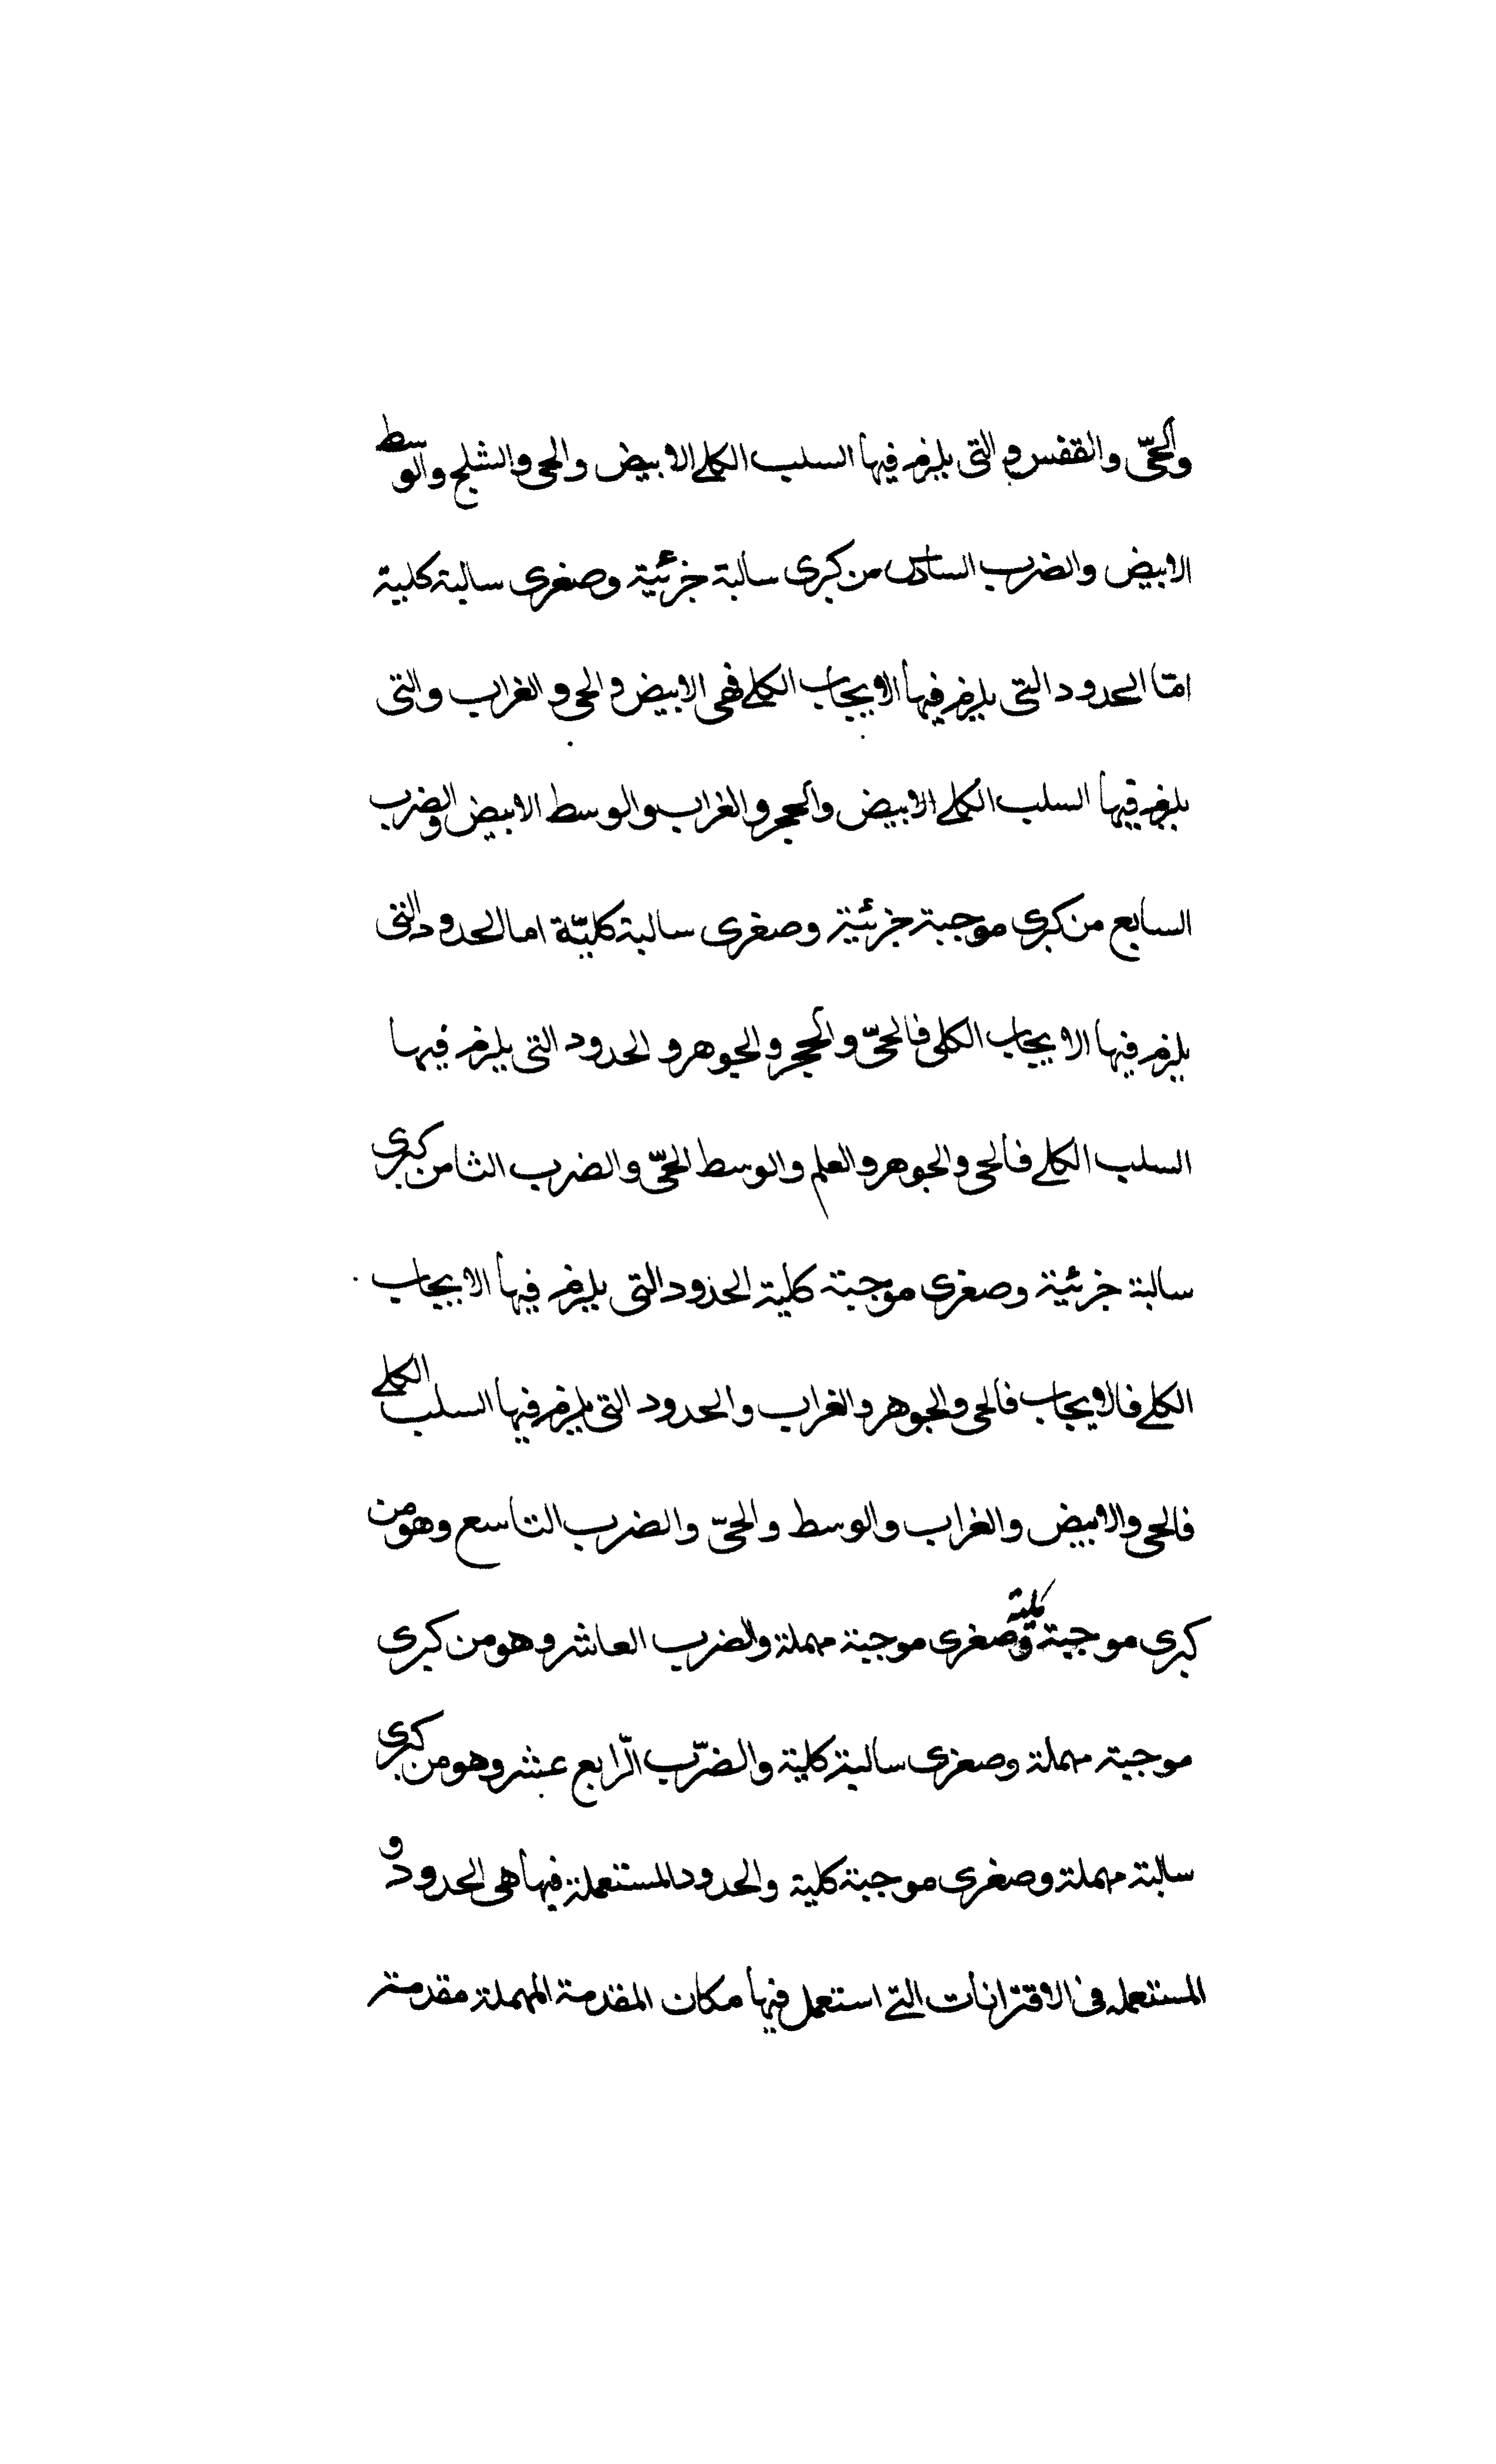 والحىّ والققنس و التى يلزم فيها السلب الكلى الابيض والحى والثلج والوسط
الابيض والضرب السادس من كبرى سالبة جزئية وصغرى سالبة كلية
امّا الحدود التى يلزم فيها الايجاب الكلى فهى الابيض والحى والغراب والتى
يلزم فيها السلب الكلى الابيض والحجر والغراب والوسط الابيض والضرب
السابع من كبرى موجبة جزئية وصغرى سالبة كليّة اما الحدود التى
يلزم فيها الايجاب الكلى فالحىّ والحجر والجوهر و الحدود التى يلزم فيها
السلب الكلى فالحى والجوهر والعلم والوسط الحىّ والضرب الثامن كبرى
سالبة جزئية وصغرى موجبة كلية الحدود التى يلزم فيها الايجاب
الكلى فالايجاب فالحى والجوهر والغراب والحدود التى يلزم فيها السلب الكلى
فالحى والابيض والغراب والوسط والحىّ والضرب التاسع وهو من
كبرى موجبة كلية وصغرى موجبة مهملة والضرب العاشر وهو من كبرى
موجبة مهملة وصغرى سالبة كلية والضرّب الرّابع عشر وهو من كبرى
سالبة مهملة وصغرى موجبة كلية والحدود المستعملة فيها هى الحدود و
المستعمله فى الاقترانات التى استعمل فيها مكان المقدمة المهملة مقدمة